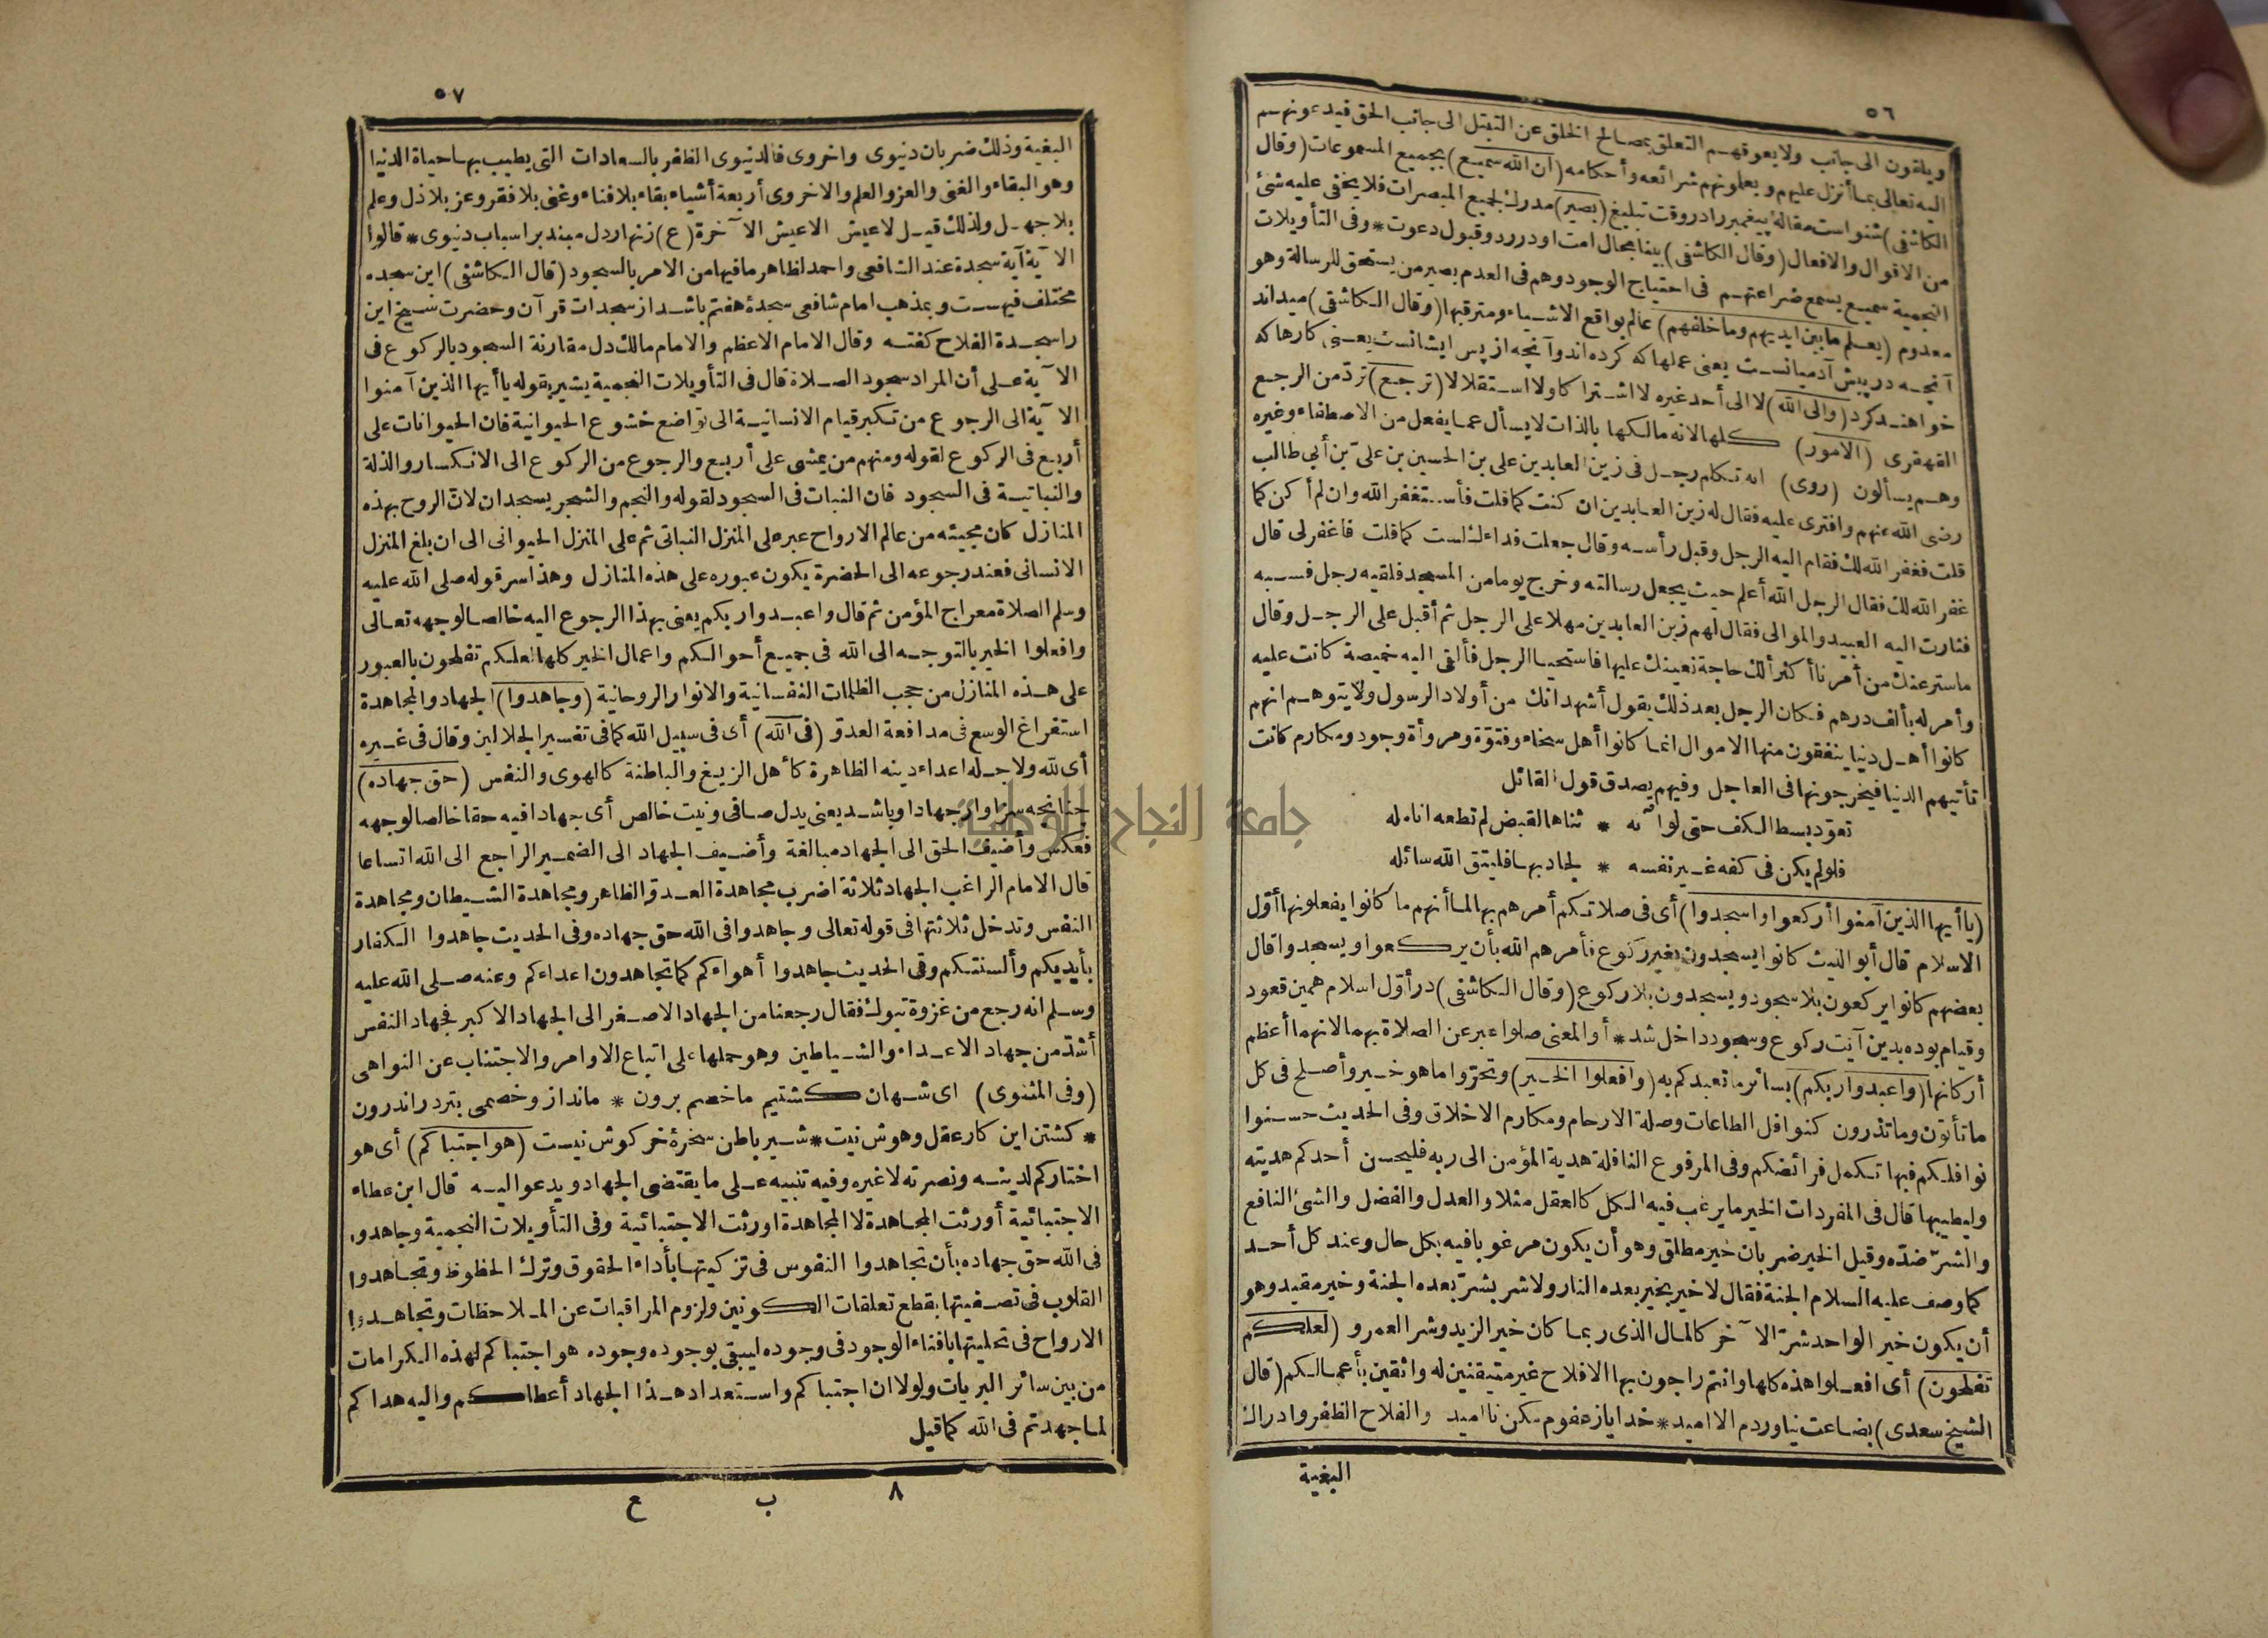 ٥٦
ويلقون الى جانب ولا يعوقهم التعلق بمصالح الخلق عن التبتل الى جانب الحق فيدعونهم
اليه تعالى بما أنزل عليهم ويعلمونهم شرائعه وأحكامه (ان الله سميع) بجميع المسموعات (وقال
الكاشفى) شنواست مقاله پيغمبر را در وقت تبليغ (بصير) مدرك لجميع المبصرات فلا يخفى عليه شئ
من الاقوال والافعال (وقال الكاشفى) بينا بحال امت او در رد وقبول دعوت * وفى التأويلات
النجمية سميع يسمع ضراعتهم فى احتياج الوجود وهم فى العدم بصير من يستحق للرسالة وهو
معدوم (يعلم ما بين ايديهم وما خلفهم) عالم بواقع الاشياء ومترقبها (وقال الكاشفى) ميداند
آنچه در پيش آدميانست يعنى عملها كه كرده اند وآنچه از پس ايشانست يعنى كارها كه
خواهند كرد (والى الله) لا الى أحد غيره لا اشتراكا ولا استقلالا (ترجع) تردّ من الرجع
القهقرى (الامور) كلها لانه مالكها بالذات لا يسأل عما يفعل من الاصطفاء وغيره
وهم يسألون (روى) انه تكلم رجل فى زين العابدين على بن الحسين بن علىّ بن أبى طالب
رضى الله عنهم وافترى عليه فقال له زين العابدين ان كنت كما قلت فأستغفر الله وان لم أكن كما
قلت فغفر الله لك فقام اليه الرجل وقبل رأسه وقال جعلت فداءك لست كما قلت فاغفر لى قال
غفر الله لك فقال الرجل الله أعلم حيث يجعل رسالته وخرج يوما من المسجد فلقيه رجل فسبه
فثارت اليه العبيد والموالى فقال لهم زين العابدين مهلا على الرجل ثم أقبل على الرجل وقال
ما ستر عنك من أمرنا أكثر ألك حاجة نعينك عليها فاستحيا الرجل فألقى اليه خميصة كانت عليه
وأمر له بألف درهم فكان الرجل بعد ذلك يقول أشهد انك من أولاد الرسول ولا يتوهم انهم
كانوا أهل دنيا ينفقون منها الاموال انما كانوا أهل سخاء وفتوّة ومروأة وجود ومكارم كانت
تأتيهم الدنيا فيخرجونها فى العاجل وفيهم يصدق قول القائل
تعوّد بسط الكف حتى لو آنه * ثناها القبض لم تطعه انامله
فلو لم يكن فى كفه غير نفسه * لجاد بها فليتق الله سائله
(يا أيها الذين آمنوا أركعوا واسجدوا) أى فى صلاتكم أمرهم بها لما أنهم ما كانوا يفعلونها أوّل
الاسلام قال أبو الليث كانوا يسجدون بغير ركوع فأمرهم الله بأن يركعوا ويسجدوا قال
بعضهم كانوا يركعون بلا سجود ويسجدون بلا ركوع (وقال الكاشفى) در أوّل اسلام همين قعود
وقيام بوده بدين آيت ركوع وسجود داخل شد * أو المعنى صلوا عبر عن الصلاة بهما لانهما أعظم
أركانها (واعبدوا ربكم) بسائر ما تعبدكم به (وافعلوا الخير) وتحرّوا ما هو خير وأصلح فى كل
ما تأتون وما تذرون كنوافل الطاعات وصلة الارحام ومكارم الاخلاق وفى الحديث حسنوا
نوافلكم فبها تكمل فرائضكم وفى المرفوع النافلة هدية المؤمن الى ربه فليحسن أحدكم هديته
وليطيبها قال فى المفردات الخير ما يرغب فيه الكل كالعقل مثلا والعدل والفضل والشئ النافع
والشرّ ضدّه وقيل الخير ضربان خير مطلق وهو أن يكون مرغوبا فيه بكل حال وعند كل أحد
كما وصف عليه السلام الجنة فقال لا خير بخير بعده النار ولا شر بشرّ بعده الجنة وخير مقيد وهو
أن يكون خير الواحد شرّ الآخر كالمال الذى ربما كان خير الزيد وشر العمرو (لعلكم
تفلحون) أى افعلوا هذه كلها وانتم راجون بها الافلاح غير متيقنين له واثقين بأعمالكم (قال
الشيخ سعدى) بضاعت نياوردم الا اميد * خدايا ز عفوم مكن نا اميد والفلاح الظفر وادراك
البغية
٥٧
البغية وذلك ضربان دنيوى واخروى فالدنيوى الظفر بالسعادات التى يطيب بها حياة الدنيا
وهو البقاء والغنى والعز والعلم والاخروى أربعة أشياء بقاء بلا فناء وغنى بلا فقر وعز بلا ذل وعلم
بلا جهل ولذلك قيل لا عيش الا عيش الآخرة (ع) زنهار دل مبند بر اسباب دنيوى * قالوا
الآية آية سجدة عند الشافعى واحمد لظاهر ما فيها من الامر بالسجود (قال الكاشفى) اين سجده
مختلف فيهست وبمذهب امام شافعى سجدهٔ هفتم باشد از سجدات قرآن وحضرت شيخ اين
را سجدة الفلاح كفته وقال الامام الاعظم والامام مالك دل مقارنة السجود بالركوع فى
الآية على أن المراد سجود الصلاة قال فى التأويلات النجمية يشير بقوله يا أيها الذين آمنوا
الآية الى الرجوع من تكبر قيام الانسانية الى تواضع خشوع الحيوانية فان الحيوانات على
أربع فى الركوع لقوله ومنهم من يمشى على أربع والرجوع من الركوع الى الانكسار والذلة
والنباتية فى السجود فان النبات فى السجود لقوله والنجم والشجر يسجدان لان الروح بهذه
المنازل كان مجيئه من عالم الارواح عبر على المنزل النباتى ثم على المنزل الحيوانى الى ان بلغ المنزل
الانسانى فعند رجوعه الى الحضرة يكون عبوره على هذه المنازل وهذا سر قوله صلى الله عليه
وسلم الصلاة معراج المؤمن ثم قال واعبدوا ربكم يعنى بهذا الرجوع اليه خالصا لوجهه تعالى
وافعلوا الخير بالتوجه الى الله فى جميع أحوالكم واعمال الخير كلها لعلكم تفلحون بالعبور
على هذه المنازل من حجب الظلمات النفسانية والانوار الروحانية (وجاهدوا) الجهاد والمجاهدة
استفراغ الوسع فى مدافعة العدوّ (فى الله) أى فى سبيل الله كما فى تفسير الجلالين وقال فى غيره
أى لله ولاجله اعداء دينه الظاهرة كأهل الزيغ والباطنة كالهوى والنفس (حق جهاده)
چنانچه سزاوار جهاد او باشد يعنى بدل صافى ونيت خالص أى جهادا فيه حقا خالصا لوجهه
فعكس وأضيف الحق الى الجهاد مبالغة وأضيف الجهاد الى الضمير الراجع الى الله اتساعا
قال الامام الراغب الجهاد ثلاثة اضرب مجاهدة العدوّ الظاهر ومجاهدة الشيطان ومجاهدة
النفس وتدخل ثلاثتها فى قوله تعالى وجاهدوا فى الله حق جهاده وفى الحديث جاهدوا الكفار
بأيديكم وألسنتكم وفى الحديث جاهدوا أهواءكم كما تجاهدون اعداءكم وعنه صلى الله عليه
وسلم انه رجع من غزوة تبوك فقال رجعنا من الجهاد الاصغر الى الجهاد الاكبر فجهاد النفس
أشدّ من جهاد الاعداء والشياطين وهو حملها على اتباع الاوامر والاجتناب عن النواهى
(وفى المثنوى) اى شهان كشتيم ما خصم برون * ماند از وخصمى بتر در اندرون
* كشتن اين كار عقل وهوش نيت * شير باطن سخرهٔ خركوش نيست (هو اجتباكم) أى هو
اختاركم لدينه ونصرته لا غيره وفيه تنبيه على ما يقتضى الجهاد ويدعو اليه قال ابن عطاء
الاجتبائية أورثت المجاهدة لا المجاهدة اورثت الاجتبائية وفى التأويلات النجمية وجاهدوا
فى الله حق جهاده بأن تجاهدوا النفوس فى تزكيتها بأداء الحقوق وترك الحظوظ وتجاهدوا
القلوب فى تصفيتها بقطع تعلقات الكونين ولزوم المراقبات عن الملاحظات وتجاهدوا
الارواح فى تحليتها بافناء الوجود فى وجوده ليبقى بوجوده وجوده هو اجتباكم لهذه الكرامات
من بين سائر البريات ولولا ان اجتباكم واستعداد هذا الجهاد أعطاكم واليه هداكم
لما جهدتم فى الله كما قيل
٨ ب ع
جامعة النجاح الوطنية